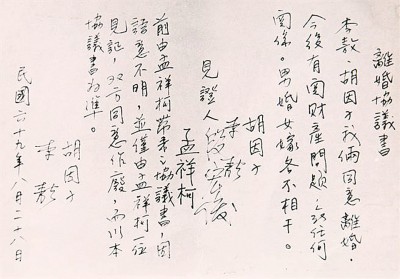 離婚協議書
李敖、胡因子我倆同意離婚。
今後有関財產問題任何
関係。男婚女嫁各不相干。
胡因子
李敖
見證人
孟祥柯
前由孟祥柯帶來之協議書，因
語意不明，並僅由孟祥柯一位
見証，双方同意作廢，而以本
協議書為準。
胡因子
李敖
民國六十九年八月二十八日